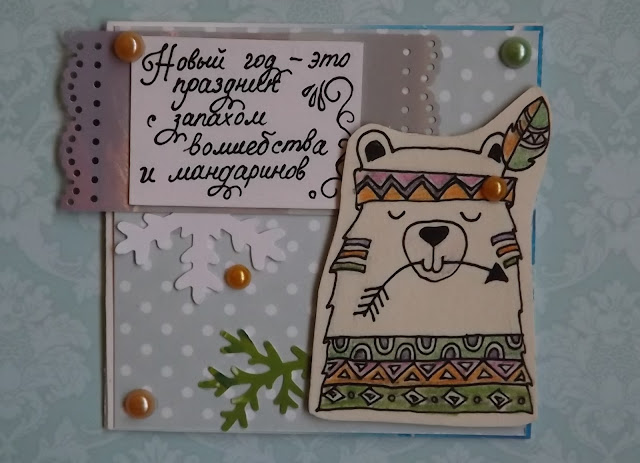 Новый год – это
праздник
с запахом
волшебства
и мандаринов.